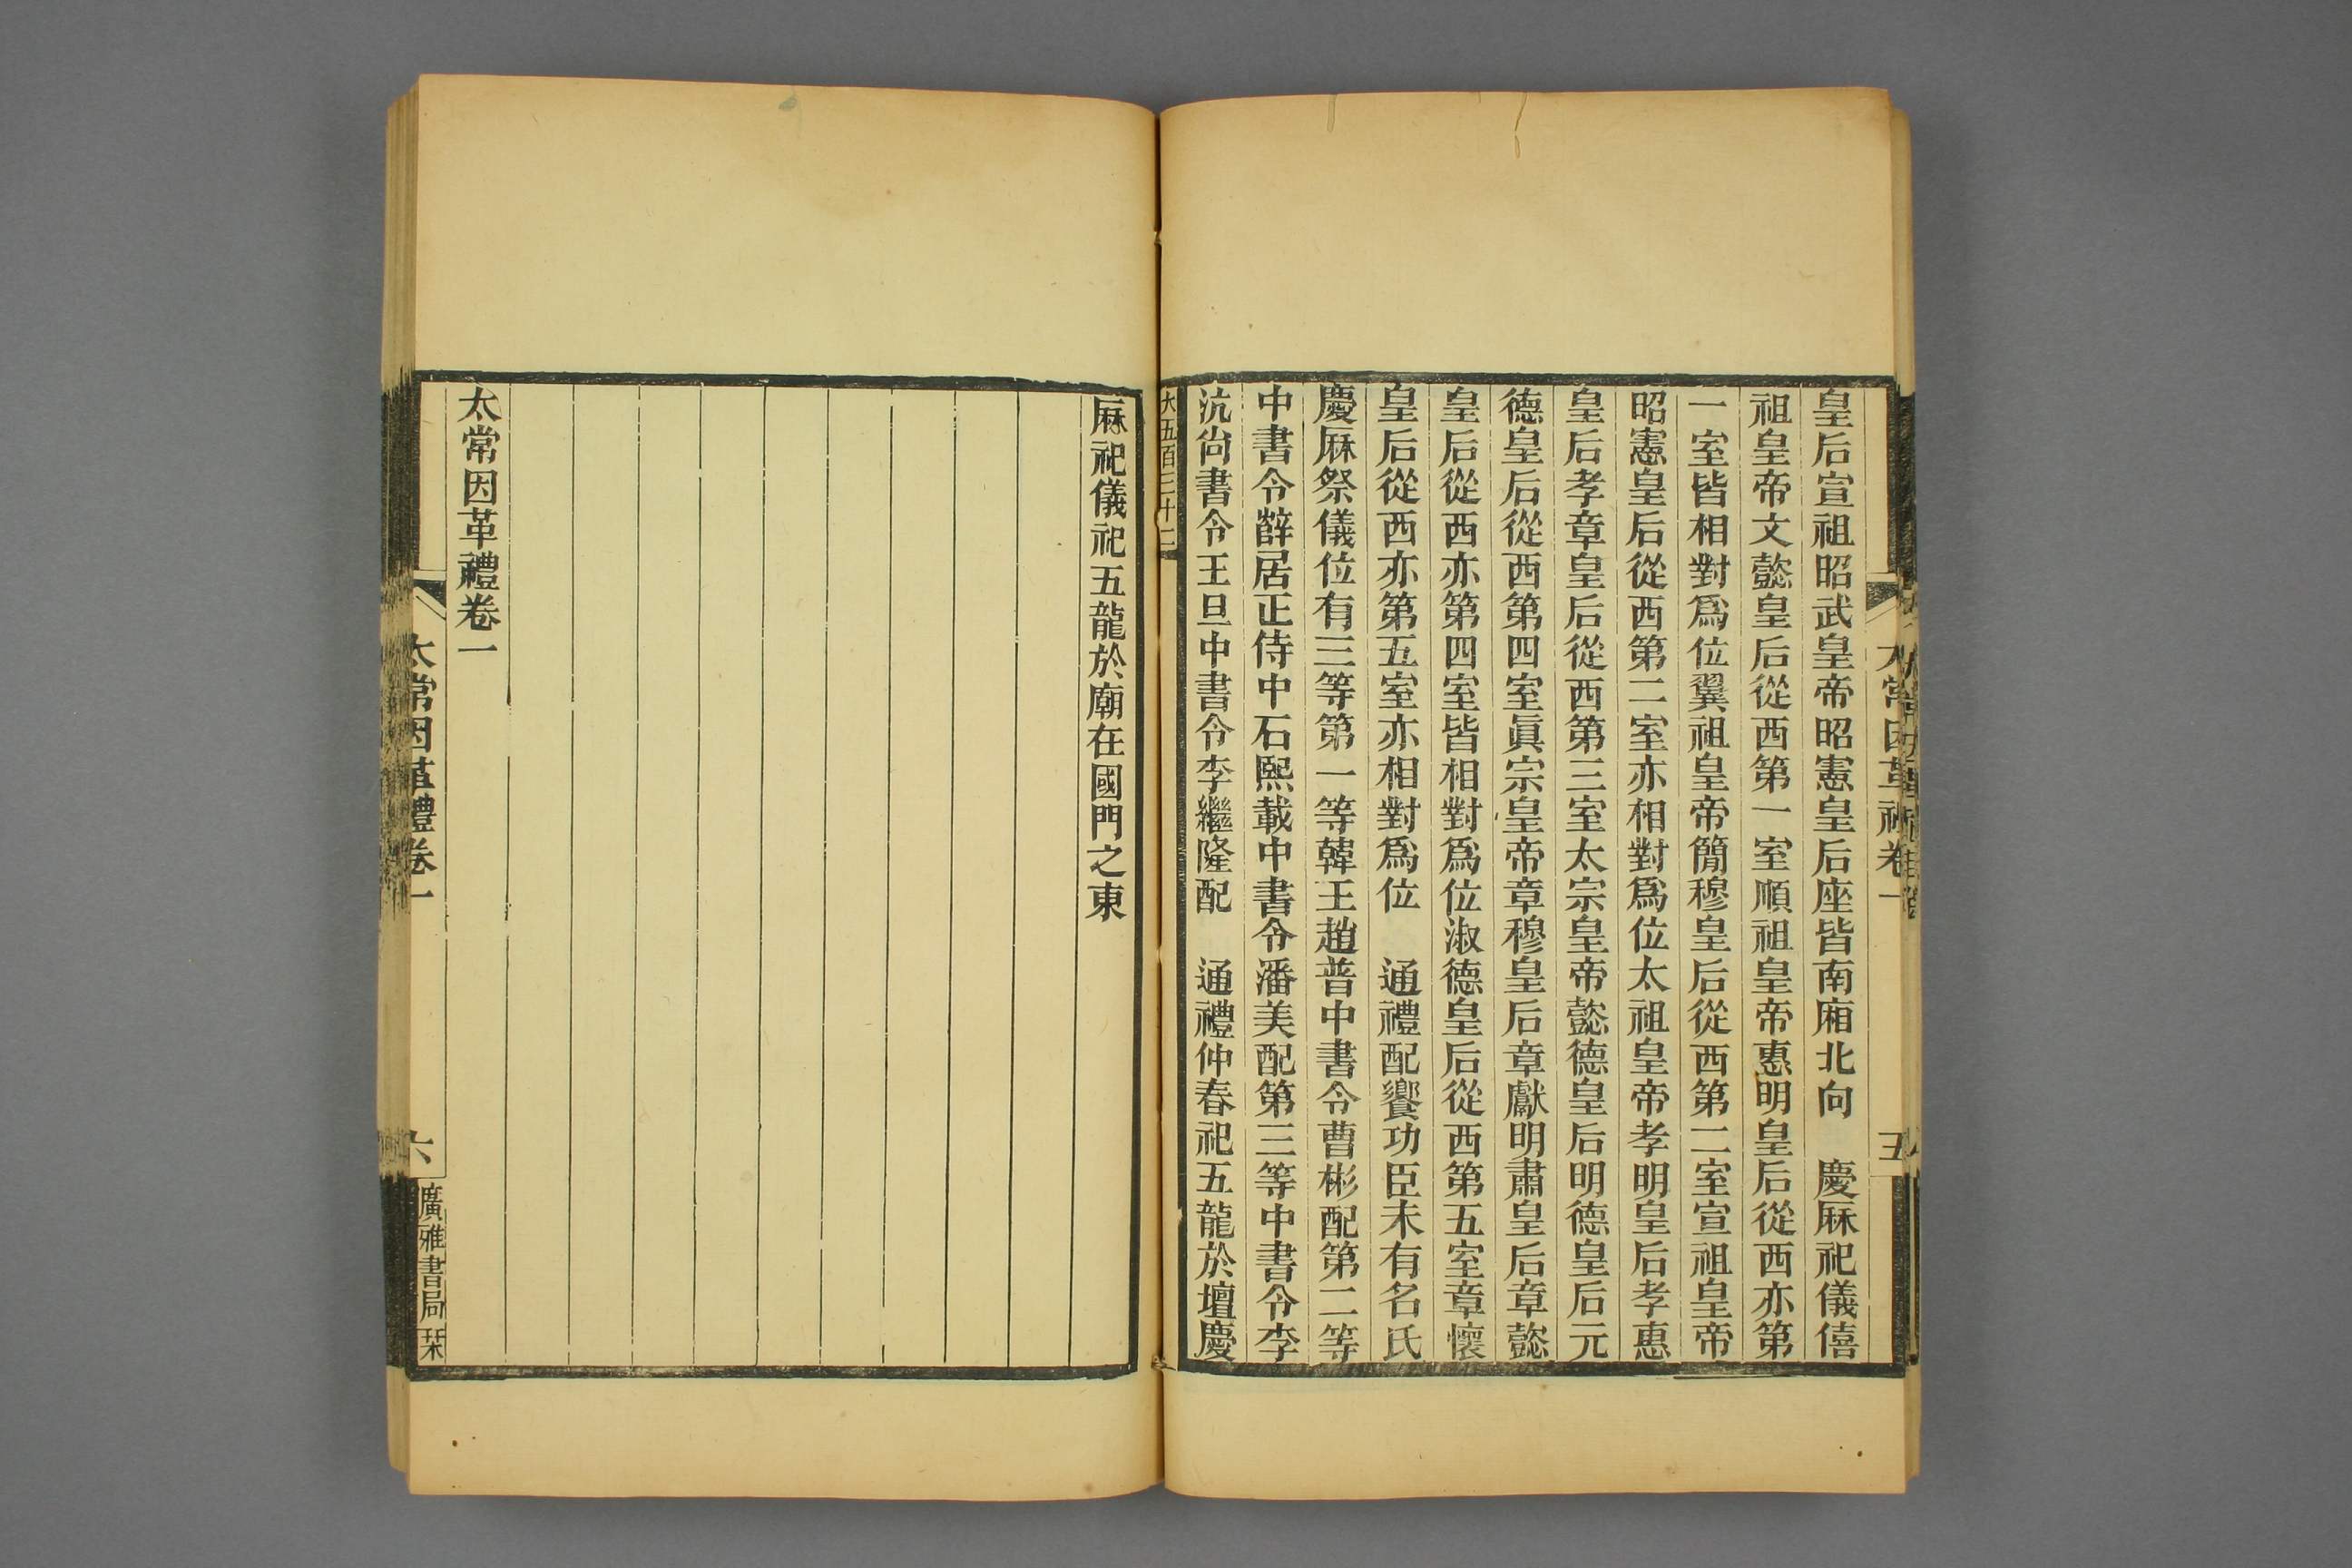 皇后宣祖昭武皇帝昭憲皇后座皆南廂北向　慶厤祀儀僖
祖皇帝文懿皇后從西第一室順祖皇帝惠明皇后從西亦第
一室皆相對爲位翼祖皇帝簡穆皇后從西第二室宣祖皇帝
昭憲皇后從西第二室亦相對爲位太祖皇帝孝明皇后孝惠
皇后孝章皇后從西第三室太宗皇帝懿德皇后明德皇后元
德皇后從西第四室眞宗皇帝章穆皇后章獻明肅皇后章懿
皇后從西亦第四室皆相對爲位淑德皇后從西第五室章懷
皇后從西亦第五室亦相對爲位　通禮配饗功臣未有名氏
慶厤祭儀位有三等第一等韓王趙普中書令曹彬配第二等
中書令薛居正侍中石熙載中書令潘美配第三等中書令李
沆尙書令王旦中書令李繼隆配　通禮仲春祀五龍於壇慶
大五百三十二
厤祀儀祀五龍於廟在國門之東
太常因革禮卷一
太常因革禮卷一
六
廣雅書局栞